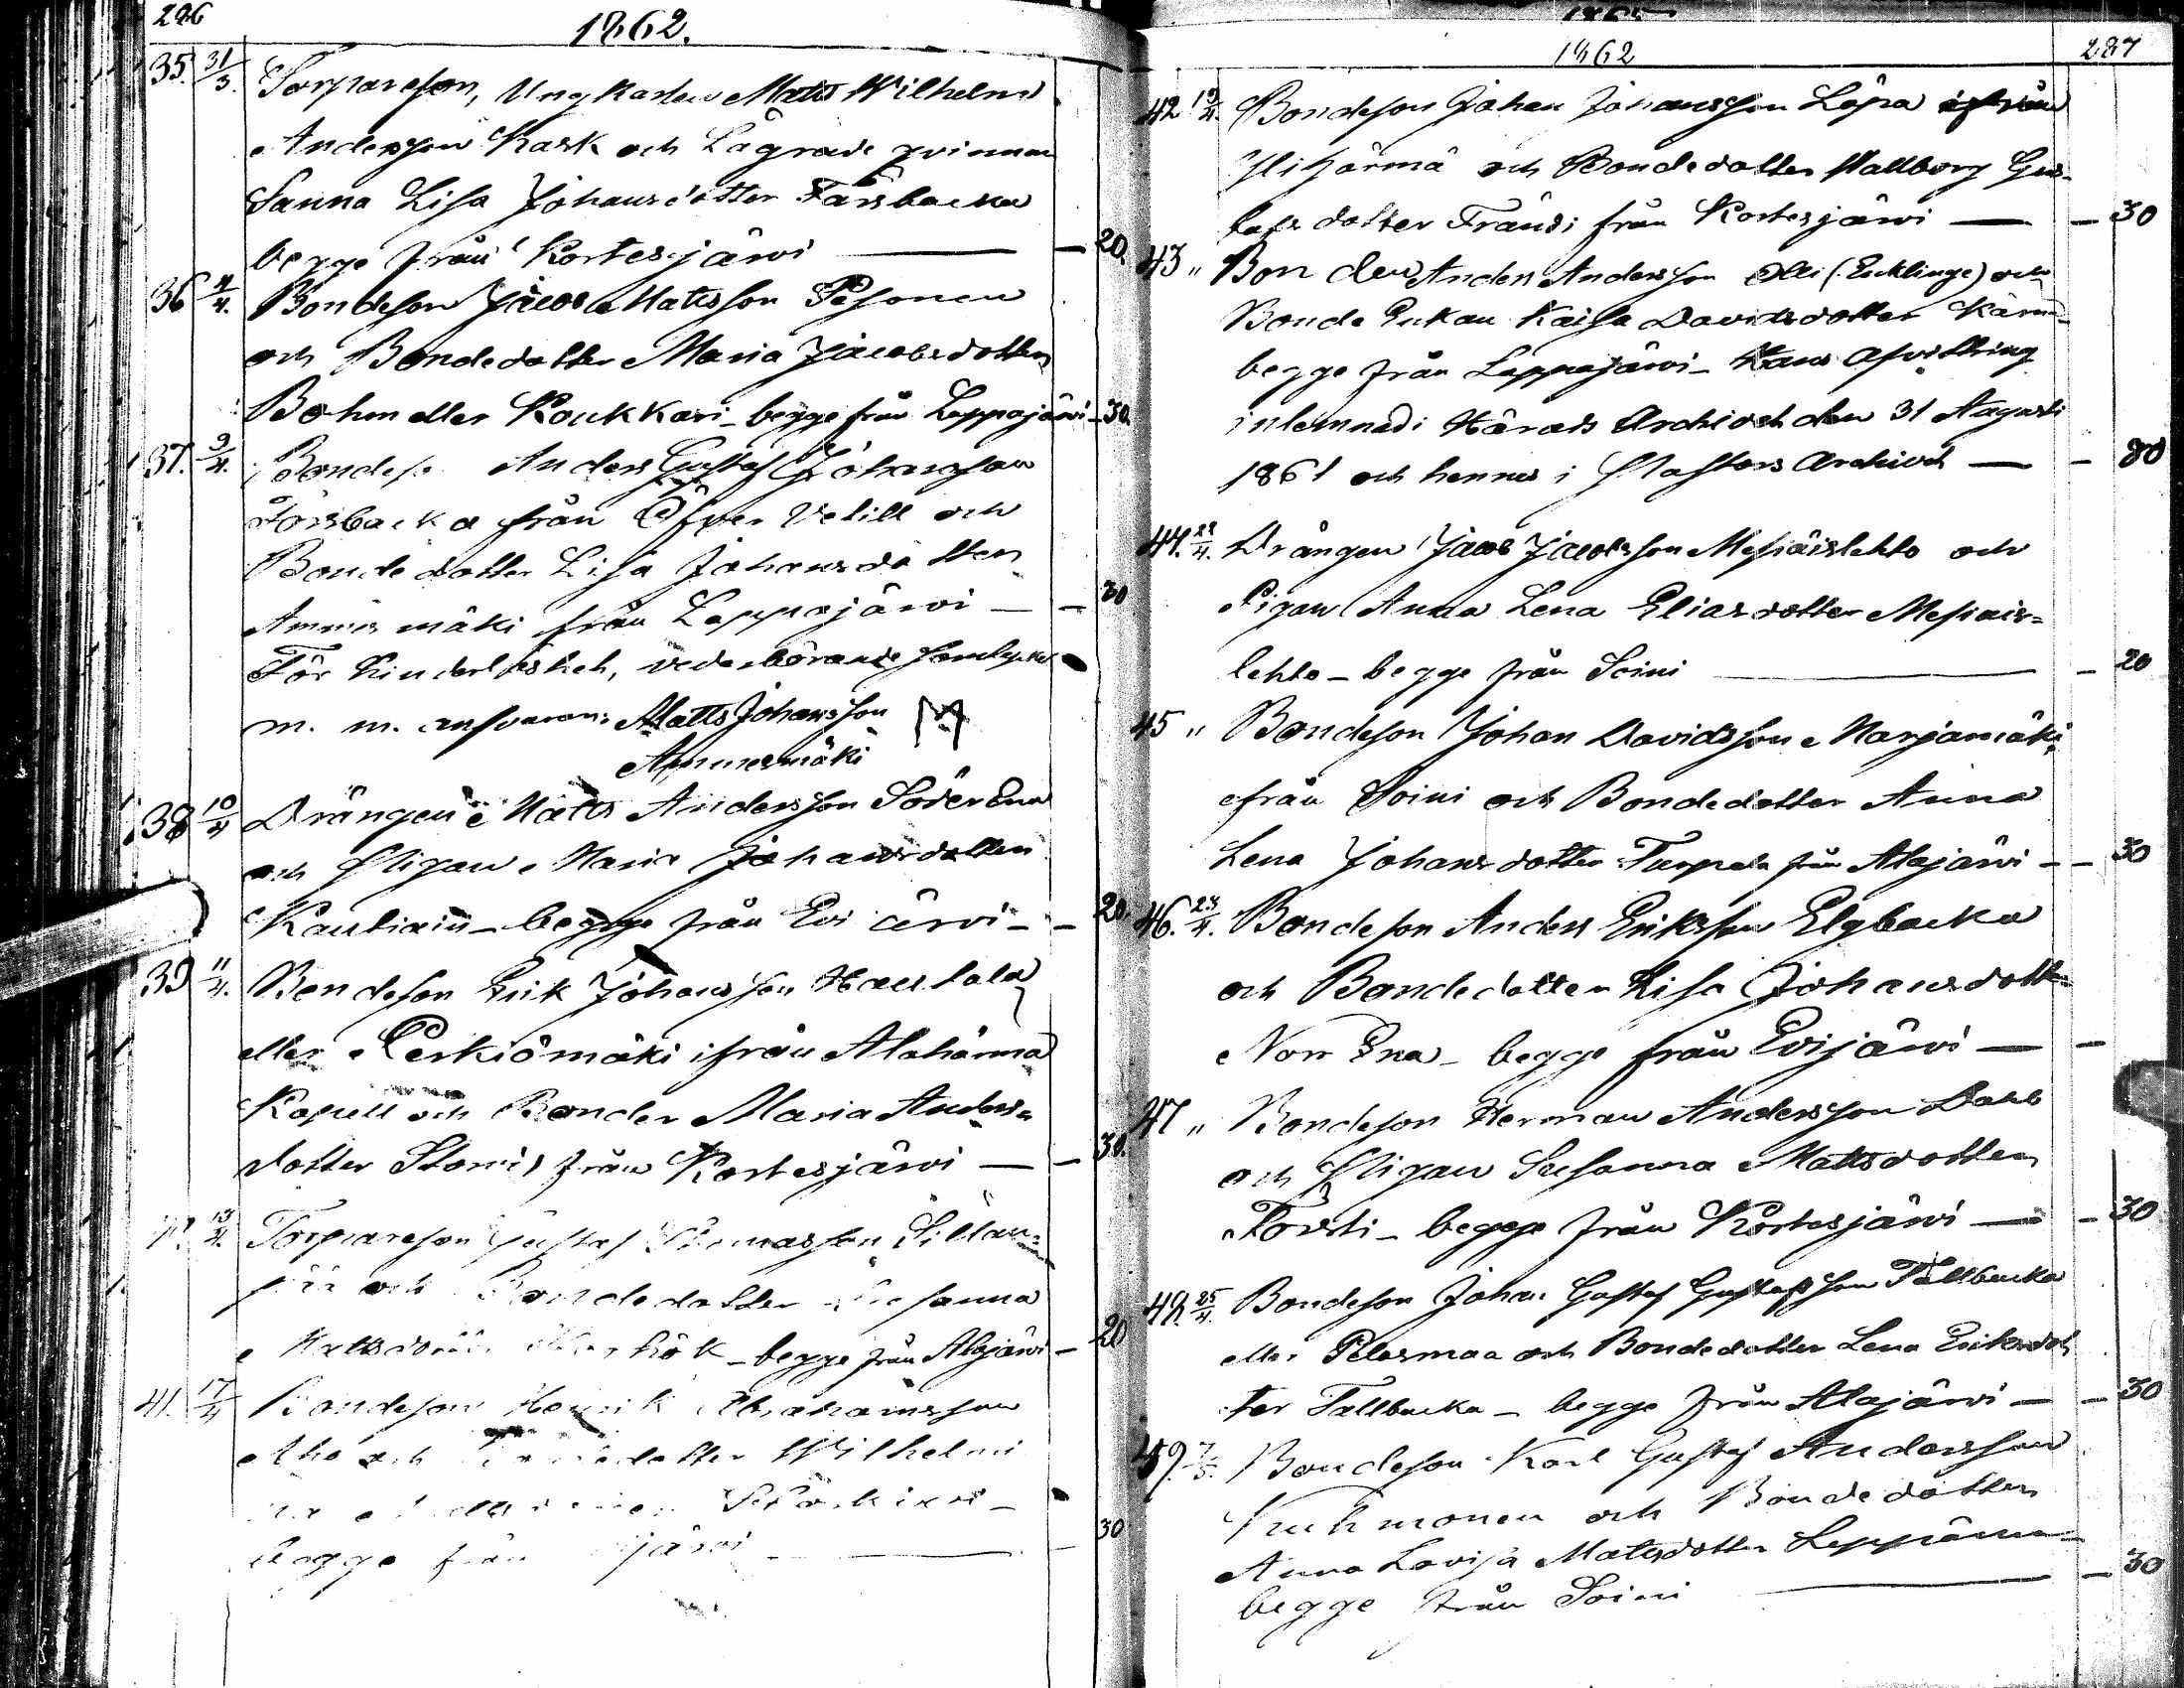 286
1862.
35. 31/3. Torpareson, Ungkarlen Matts Wilhelm
Andersson Kask och Lägrade qvinnan
Sanna Lisa Johansdotter Färsbacka
begge från Kortesjärwi — — 20.
36 4/4. Bondeson Jacob Mattsson Pesonen
och Bondedotter Maria Jacobsdotter
Bohm eller Koukkari - begge från Lappajärwi - 30.
37. 9/4. Bondeso Anders Gustaf Johansson
Förssbacka från Öfver Vetill och
Bondedotter Lisa Johansdotter
Ammesmäki från Lappajärwi — — 30
För hinderlöshet, vederbörande
m. m. ansvarar Matts Johansson
Ammesmäki
38 10/4 Drängen Matts Andersson Söder Ena
och Pigan Maria Johansdotter
Kautiain - begge från Evi ärvi - - 20.
39 11/4. Bondeson Erik Johansson Hautala
eller Perkiömäki ifrån Alahärmä
Kapell och Bonden Maria Anders=
dotter Storris från Kortesjärwi — — 30.
13/4. Torpareson Gustaf Thomasson Sillan=
pää och Bondedotter Susanna
Mattsdotter - begge från Alajärwi - 20
41. 17/4 Bondeson Henrik Abrahamsson
Aho och dotter Wilhelmi
begge från järvi — — 30
1862
287
42 19/4. Bondeson Johan Johansson Löpa ifrån
Ylihärmä och Bondedotter Wallborg Gus-
tafsdotter Frändi från Kortesjärwi — — 30
43 " Bonden Anders Andersson Olli (Encklinge) och
Bonde Enkan Kaisa Davidsdotter Kärnä
begge från Lappajärwi - Hans afvittring
inlemnad i Härads Archivet den 31 Augusti
1861 och hennes i Pastors Archivet — — 80
44. 22/4. Drängen Jacob Jacobsson Mesiäislehto och
Pigan Anna Lena Eliasdotter Mesiäis=
lehto - begge från Soini — — 20
45 " Bondeson Johan Davidsson Marjamäki
från Soini och Bondedotter Anna
Lena Johansdotter Turpela från Alajärwi - - 30
46. 23/4. Bondeson Anders Eriksson Elgbacka
och Bondedotter Lisa Johansdotte
Norr Ena - begge från Evijärwi — —
47 " Bondeson Herman Andersson Dahl
och Pigan Susanna Mattsdotter
Forsti - begge från Kortesjärwi — - 30
48 25/4. Bondeson Johan Gustaf Gustafsson Tallbacka
eller Pelasmaa och Bondedotter Lena Eriksdot
ter Tallbacka - begge från Alajärwi — - 30
49. 7/5. Bondeson Karl Gustaf Andersson
Kuhmonen och Bondedotter
Anna Lovisa Mattsdotter Leppänen
begge från Soini — — 30